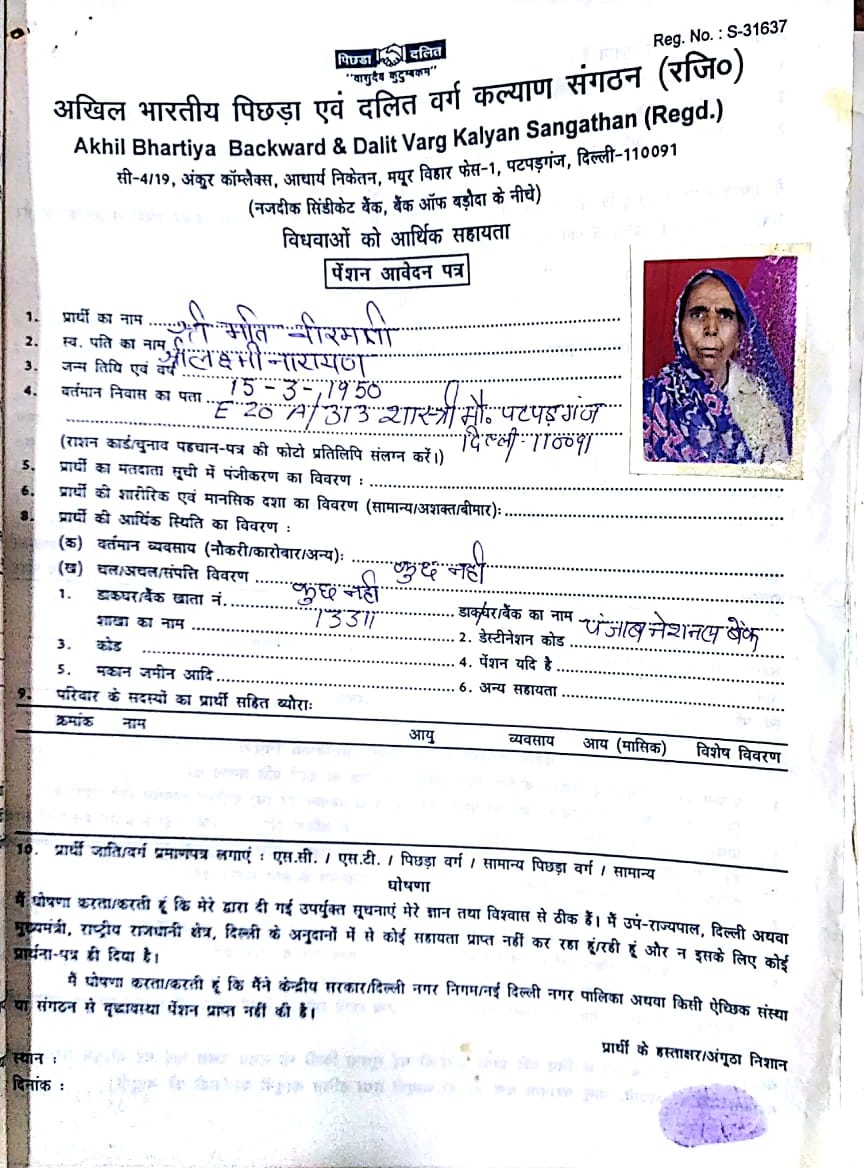 Reg. No. : S-31637
पिछड़ा दलित
"वासुदेव कुटुम्बकम"
अखिल भारतीय पिछड़ा एवं दलित वर्ग कल्याण संगठन (रजि०)
Akhil Bhartiya Backward & Dalit Varg Kalyan Sangathan (Regd.)
सी-4/19, अंकुर कॉम्लैक्स, आचार्य निकेतन, मयूर विहार फेस-1, पटपड़गंज, दिल्ली-110091
(नजदीक सिंडीकेट बैंक, बैंक ऑफ बड़ौदा के नीचे)
विधवाओं को आर्थिक सहायता
पेंशन आवेदन पत्र
1. प्रार्थी का नाम श्री मति वीरमती
2. स्व. पति का नाम श्री लक्ष्मी नारायण
3. जन्म तिथि एवं वर्ष 15-3-1950
4. वर्तमान निवास का पता E 20 A/313 शास्त्री मौ. पटपड़गंज
दिल्ली-110091
(राशन कार्ड/चुनाव पहचान-पत्र की फोटो प्रतिलिपि संलग्न करें।)
5. प्रार्थी का मतदाता सूची में पंजीकरण का विवरण :
6. प्रार्थी की शारीरिक एवं मानसिक दशा का विवरण (सामान्य/अशक्त/बीमार):
8. प्रार्थी की आर्थिक स्थिति का विवरण :
(क) वर्तमान व्यवसाय (नौकरी/कारोबार/अन्य): कुछ नही
(ख) चल/अचल/संपत्ति विवरण कुछ नही
1. डाकघर/बैंक खाता नं. 13311 डाकघर/बैंक का नाम पंजाब नेशनल बैंक
शाखा का नाम 2. डेस्टीनेशन कोड
3. कोड 4. पेंशन यदि है
5. मकान जमीन आदि 6. अन्य सहायता
9. परिवार के सदस्यों का प्रार्थी सहित ब्यौराः
क्रमांक नाम आयु व्यवसाय आय (मासिक) विशेष विवरण
10. प्रार्थी जाति/वर्ग प्रमाणपत्र लगाएं : एस.सी. / एस.टी. / पिछड़ा वर्ग / सामान्य पिछड़ा वर्ग / सामान्य
घोषणा
मैं घोषणा करता/करती हूं कि मेरे द्वारा दी गई उपर्युक्त सूचनाएं मेरे ज्ञान तथा विश्वास से ठीक हैं। मैं उप-राज्यपाल, दिल्ली अथवा
मुख्यमंत्री, राष्ट्रीय राजधानी क्षेत्र, दिल्ली के अनुदानों में से कोई सहायता प्राप्त नहीं कर रहा हूं/रही हूं और न इसके लिए कोई
प्रार्थना-पत्र ही दिया है।
मैं घोषणा करता/करती हूं कि मैंने केन्द्रीय सरकार/दिल्ली नगर निगम/नई दिल्ली नगर पालिका अथवा किसी ऐच्छिक संस्था
या संगठन से वृद्धावस्था पेंशन प्राप्त नहीं की है।
प्रार्थी के हस्ताक्षर/अंगूठा निशान
स्थान :
दिनांक :